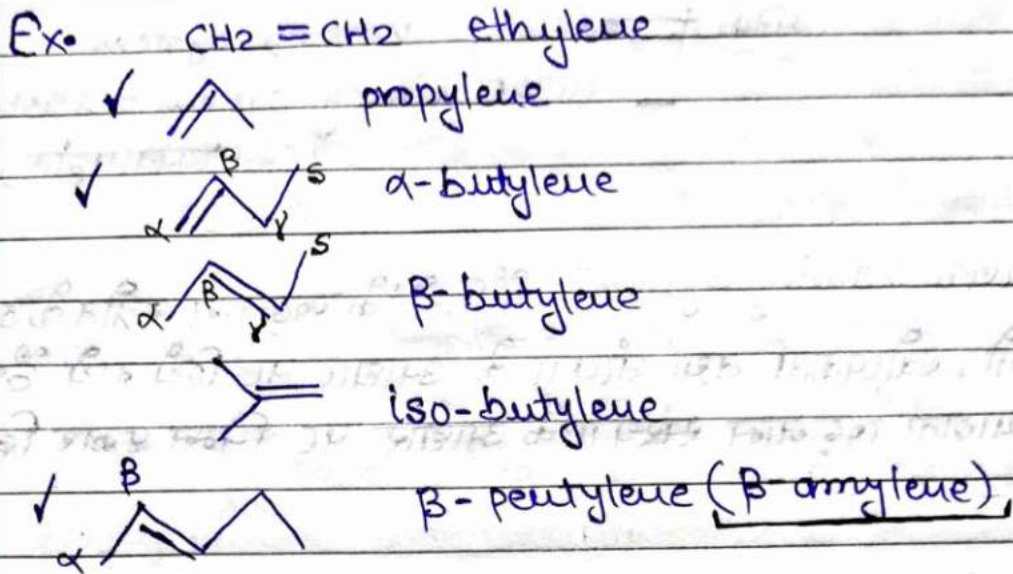 Ex. CH2 = CH2 ethylene
✓ propylene
✓ α β γ S α-butylene
α β γ S β-butylene
iso-butylene
✓ α β β-pentylene (β-amylene)